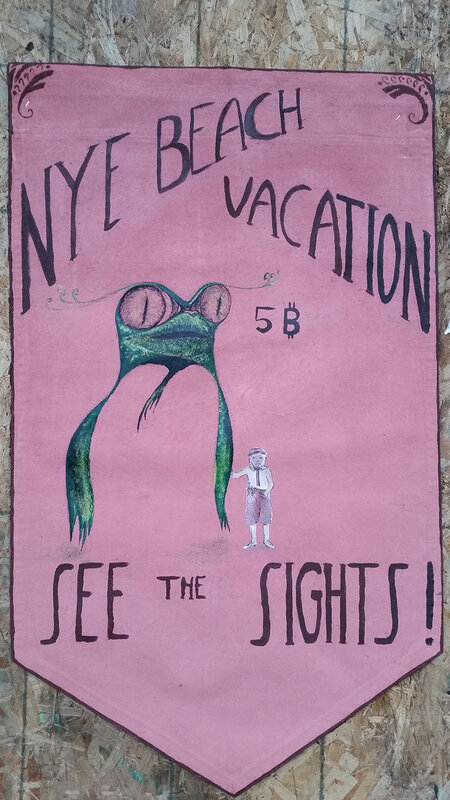 NYE BEACH
VACATION
5₿
SEE THE SIGHTS!